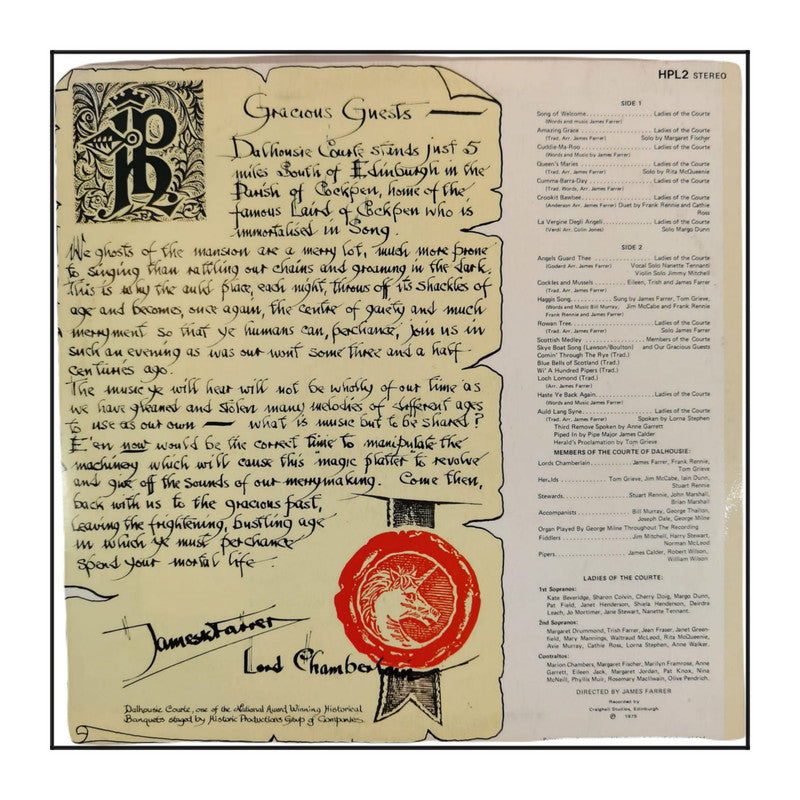 Gracious Guests —
Dalhousie Courte stands just 5
miles South of Edinburgh in the
Parish of Cockpen, home of the
famous Laird of Cockpen who is
immortalised in Song.
We ghosts of the mansion are a merry lot, much more prone
to singing than rattling our chains and groaning in the dark.
This is why the auld place, each night, throws off its shackles of
age and becomes, once again, the centre of gaiety and much
merryment so that ye humans can, perchance, join us in
such an evening as was our wont some three and a half
centuries ago.
The music ye will hear will not be wholly of our time as
we have gleaned and stolen many melodies of different ages
to use as our own — what is music but to be shared?
E'en now would be the correct time to manipulate the
machinery which will cause this "magic platter" to revolve
and give off the sounds of our merrymaking. Come then,
back with us to the gracious past,
leaving the frightening, bustling age
in which ye must perchance
spend your mortal life.
James Farrer
Lord Chamberlain
Dalhousie Courte, one of the National Award Winning Historical
Banquets staged by Historic Productions Group of Companies.
HPL2 STEREO
SIDE 1
Song of Welcome Ladies of the Courte
(Words and music James Farrer)
Amazing Grace Ladies of the Courte
(Trad. Arr. James Farrer) Solo by Margaret Fischer
Cuddie-Ma-Roo Ladies of the Courte
(Words and Music by James Farrer)
Queen's Maries Ladies of the Courte
(Trad. Arr. James Farrer) Solo by Rita McQueenie
Cumma-Barra-Day Ladies of the Courte
(Trad. Words, Arr. James Farrer)
Crookit Bawbee Ladies of the Courte
(Anderson Arr. James Farrer) Duet by Frank Rennie and Cathie
Ross
La Vergine Degli Angeli Ladies of the Courte
(Verdi Arr. Colin Jones) Solo Margo Dunn
SIDE 2
Angels Guard Thee Ladies of the Courte
(Godard Arr. James Farrer) Vocal Solo Nanette Tennanti
Violin Solo Jimmy Mitchell
Cockles and Mussels Eileen, Trish and James Farrer
(Trad. Arr. James Farrer)
Haggis Song Sung by James Farrer, Tom Grieve,
(Words and Music Bill Murray, Jim McCabe and Frank Rennie
Frank Rennie and James Farrer)
Rowan Tree Ladies of the Courte
(Trad. Arr. James Farrer) Solo James Farrer
Scottish Medley Members of the Courte
Skye Boat Song (Lawson/Boulton) and Our Gracious Guests
Comin' Through The Rye (Trad.)
Blue Bells of Scotland (Trad.)
Wi' A Hundred Pipers (Trad.)
Loch Lomond (Trad.)
(Arr. James Farrer)
Haste Ye Back Again Ladies of the Courte
(Words and Music James Farrer)
Auld Lang Syne Ladies of the Courte
(Trad. Arr. James Farrer) Spoken by Lorna Stephen
Third Remove Spoken by Anne Garrett
Piped In by Pipe Major James Calder
Herald's Proclamation by Tom Grieve
MEMBERS OF THE COURTE OF DALHOUSIE:
Lords Chamberlain James Farrer, Frank Rennie,
Tom Grieve
Heralds Tom Grieve, Jim McCabe, Iain Dunn,
Stuart Rennie
Stewards Stuart Rennie, John Marshall,
Brian Marshall
Accompanists Bill Murray, George Thallon,
Joseph Dale, George Milne
Organ Played By George Milne Throughout The Recording
Fiddlers Jim Mitchell, Harry Stewart,
Norman McLeod
Pipers James Calder, Robert Wilson,
William Wilson
LADIES OF THE COURTE:
1st Sopranos:
Kate Beveridge, Sharon Colvin, Cherry Doig, Margo Dunn,
Pat Field, Janet Henderson, Shiela Henderson, Deirdra
Leach, Jo Mortimer, Jane Stewart, Nanette Tennant.
2nd Sopranos:
Margaret Drummond, Trish Farrer, Jean Fraser, Janet Green-
field, Mary Mannings, Waltraud McLeod, Rita McQueenie,
Avie Murray, Cathie Ross, Lorna Stephen, Anne Walker.
Contraltos:
Marion Chambers, Margaret Fischer, Marilyn Framrose, Anne
Garrett, Eileen Jack, Margaret Jordan, Pat Knox, Nina
McNeill, Phyllis Muir, Rosemary MacIlwain, Olive Pendrich.
DIRECTED BY JAMES FARRER
Recorded by
Craighall Studios, Edinburgh
℗ 1975